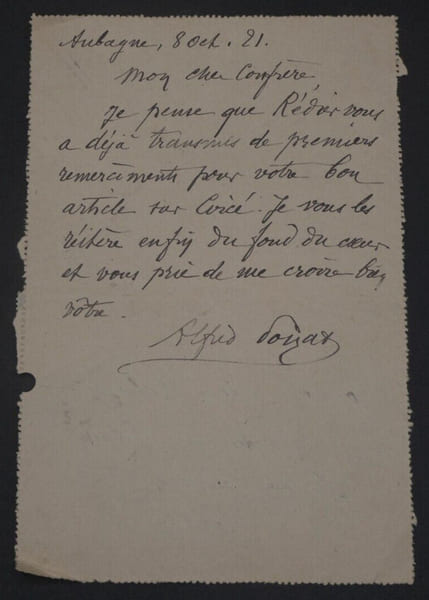 Aubagne, 8 Oct. 21.
Mon cher Confrère,
Je pense que Rédier vous
a déjà transmis de premiers
remerciments pour votre bon
article sur Circé. Je vous les
réitère enfin du fond du cœur
et vous prie de me croire bien
vôtre.
Alfred